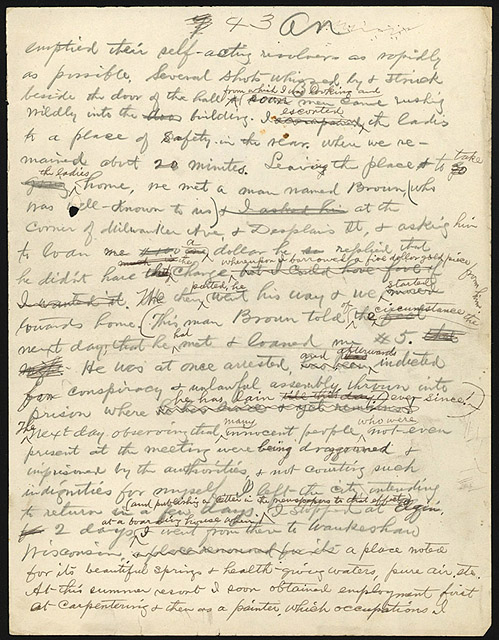 43 An
emptied their self-acting revolvers as rapidly
as possible. Several shots whizzed by & struck
from which I was looking and
beside the door of the hall, soon men came rushing
wildly into the building. I escorted the ladies
to a place of safety in the rear, where we re-
mained about 20 minutes. Leaving the place to take
the ladies home, we met a man named Brown (who
was well-known to us) & I asked him at the
corner of Milwaukee Ave, & Desplain St, & asking him
to loan me a dollar he replied that
he didn't have the change, but I could have five if
whereupon I borrowed a five dollar gold piece from him.
I wanted it. We then parted, he went his way & we started
towards home. (This man Brown told of the circumstance the
next day, that he had met & loaned me $5.
He was at once arrested, and afterwards indicted
for conspiracy & unlawful assembly, thrown into
prison where he has lain ever since.)
The next day observing that many innocent people who were not even
present at the meeting were being dragooned &
imprisoned by the authorities, & not courting such
indignities for myself I left the city intending
to return in a few days. (and publishing a letter in the newspapers to that effect) I stopped at Elgin,
2 days at a boarding house when I went from then to Waukesha
Wisconsin, a place renowned for its a place noted
for its beautiful springs & health-giving waters, pure air, etc.
At this summer resort I soon obtained employment first
at carpentering & then as a painter which occupations I